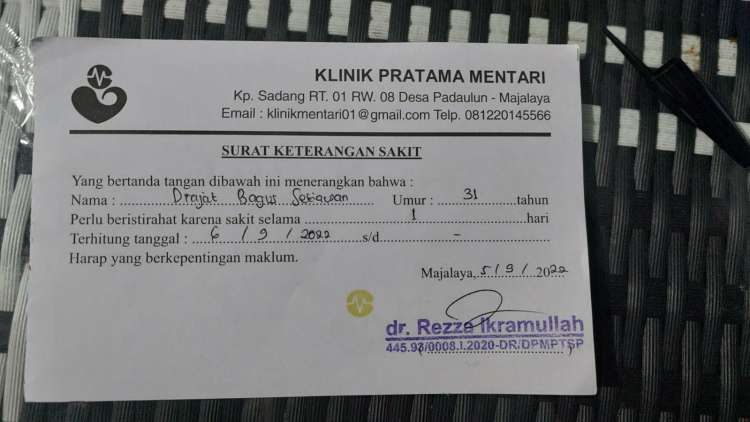 KLINIK PRATAMA MENTARI
Kp. Sadang RT. 01 RW. 08 Desa Padaulun - Majalaya
Email : klinikmentari01@gmail.com Telp. 081220145566
SURAT KETERANGAN SAKIT
Yang bertanda tangan dibawah ini menerangkan bahwa :
Nama : Drajat Bagus Setiawan Umur : 31 tahun
Perlu beristirahat karena sakit selama 1 hari
Terhitung tanggal : 6 / 9 / 2022 s/d -
Harap yang berkepentingan maklum.
Majalaya, 5 / 9 / 2022
dr. Rezza Ikramullah
445.93/0008.I.2020-DR/DPMPTSP